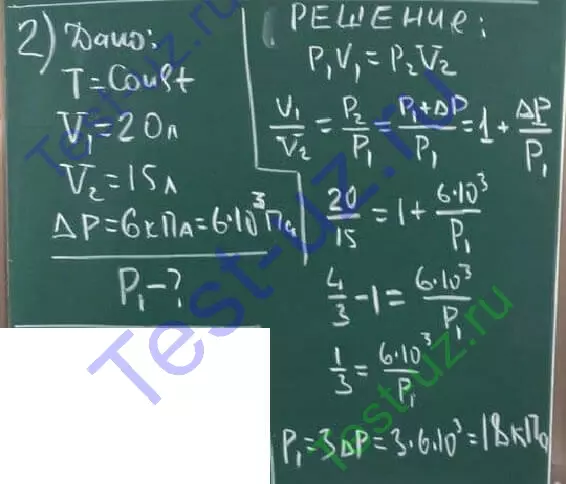 2) Дано:
T = Const
V₁ = 20л
V₂ = 15л
ΔP = 6кПа = 6·10³Па
P₁ - ?
РЕШЕНИЕ:
P₁V₁ = P₂V₂
V₁/V₂ = P₂/P₁ = P₁+ΔP/P₁ = 1 + ΔP/P₁
20/15 = 1 + 6·10³/P₁
4/3 - 1 = 6·10³/P₁
1/3 = 6·10³/P₁
P₁ = 3ΔP = 3·6·10³ = 18кПа
Test-uz.ru
Test-uz.ru
Test-uz.ru